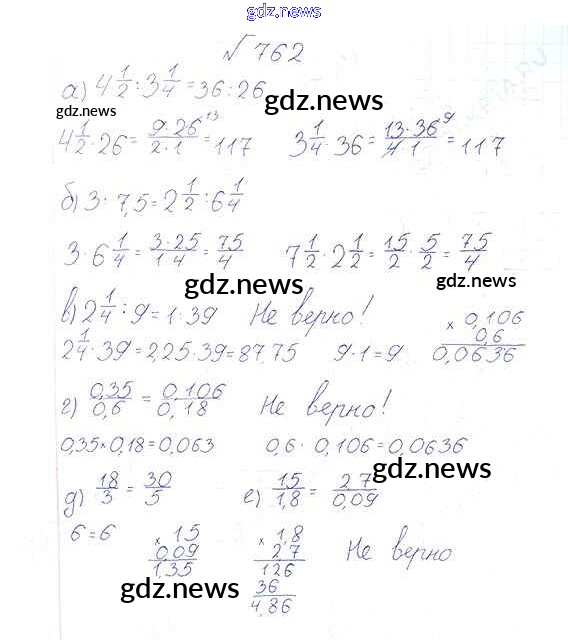 gdz.news
№ 762
а) 4 1/2 : 3 1/4 = 36 : 26
gdz.news gdz.news
4 1/2 · 26 = 9·26/2·1 13 = 117 3 1/4 · 36 = 13·36/4·1 9 = 117
б) 3 · 7,5 = 2 1/2 : 6 1/4
3 · 6 1/4 = 3·25/1 4 = 75/4 7 1/2 · 2 1/2 = 15/2 · 5/2 = 75/4
gdz.news
в) 2 1/4 : 9 = 1 · 39 Не верно!
2 1/4 · 39 = 2,25 · 39 = 87,75 9 · 1 = 9
× 0,106
0,6
0,0636
г) 0,35/0,6 = 0,106/0,18 Не верно!
0,35 × 0,18 = 0,063 0,6 · 0,106 = 0,0636
gdz.news
д) 18/3 = 30/5 е) 15/1,8 = 2,7/0,09
6 = 6
× 15
0,09
1,35
× 1,8
2,7
126
36
4,86
Не верно
gdz.news